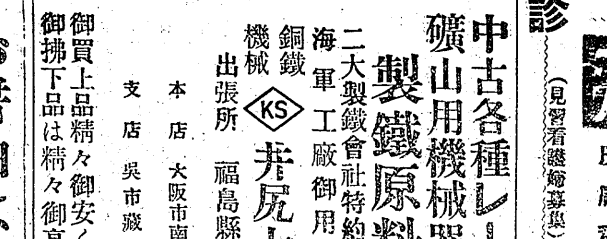 診
(見習看護婦募集)
中古各種レー
礦山用機械器
製鐵原料
二大製鐵會社特約
海軍工廠御用
銅鐵
機械
KS
井尻
出張所 福島縣
本店 大阪市南
支店 吳市藏
御買上品精々御安く
御拂下品は精々御高